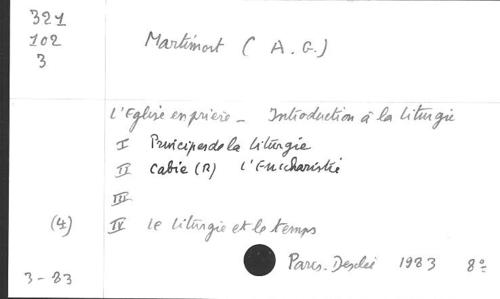 321
102
3
Martimort ( A. G.)
L'Eglise en prière - Introduction à la liturgie
I Principes de la liturgie
II Cabie (R) L'Eucharistie
III
(4) IV Le liturgie et le temps
Paris. Desclée 1983 8°
3-83